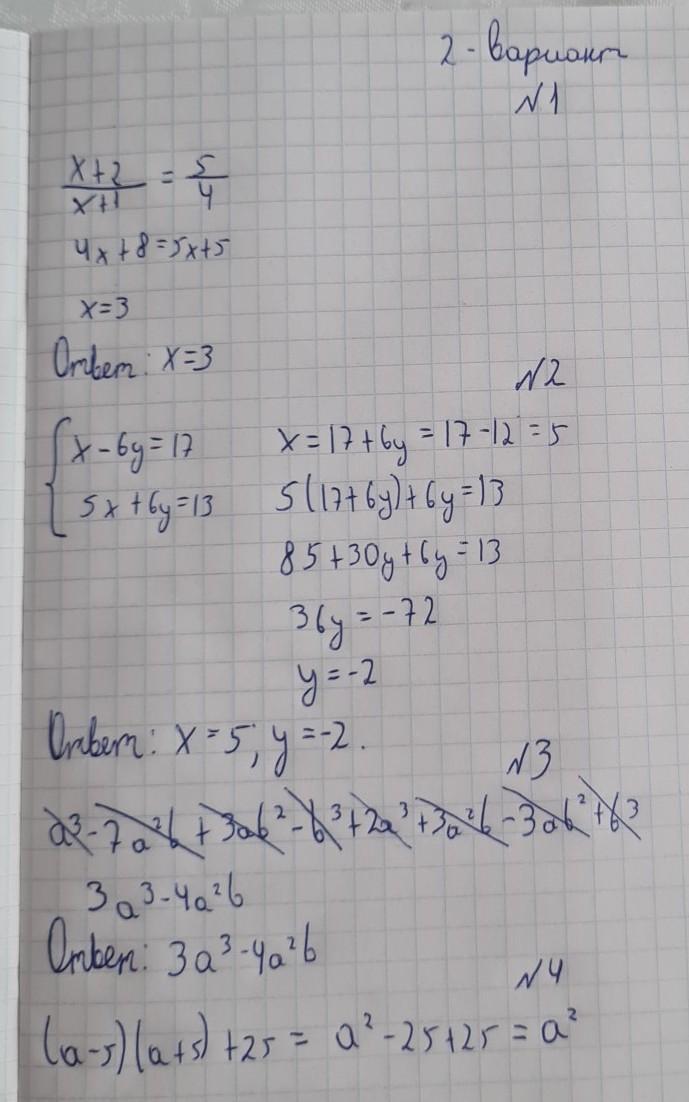 2 - вариант
N1
x+2/x+1 = 5/4
4x+8=5x+5
x=3
Ответ: x=3
N2
{ x-6y=17
5x+6y=13
x=17+6y=17-12=5
5(17+6y)+6y=13
85+30y+6y=13
36y=-72
y=-2
Ответ: x=5, y=-2.
N3
a³-7a²b+3ab²-b³+2a³+3a²b-3ab²+b³
3a³-4a²b
Ответ: 3a³-4a²b
N4
(a-5)(a+5)+25 = a²-25+25 = a²